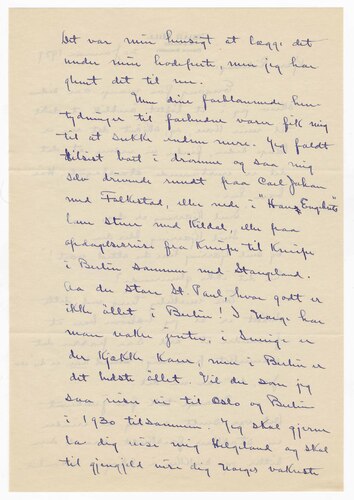 Det var min hensigt at lægge det
under min hodepute, men jeg har
glemt det til nu.
Men dine forblommede hen-
tydninger til forbudne varer fik mig
til at sukke endnu mere. Jeg faldt
tilsist hen i drömme og saa mig
selv drivende rundt paa Carl Johan
med Falkestad, eller nede i "Hans
Lun sture med Kildal, eller paa
opdagelsesreise fra Kneipe til Kneipe
i Berlin sammen med Stangland.
Aa du store St. Paul, hvor godt er
ikke öllet i Berlin! I Norge har
man vakre jenter, i Sverige er
der Kjække Karer, men i Berlin er
det bedste öllet. Vil du som jeg
saa reiser vi til Oslo og Berlin
i 1930 tilsammen. Jeg skal gjerne
la dig vise mig Helgeland og skal
til gjengjeld vise dig Norges vakreste